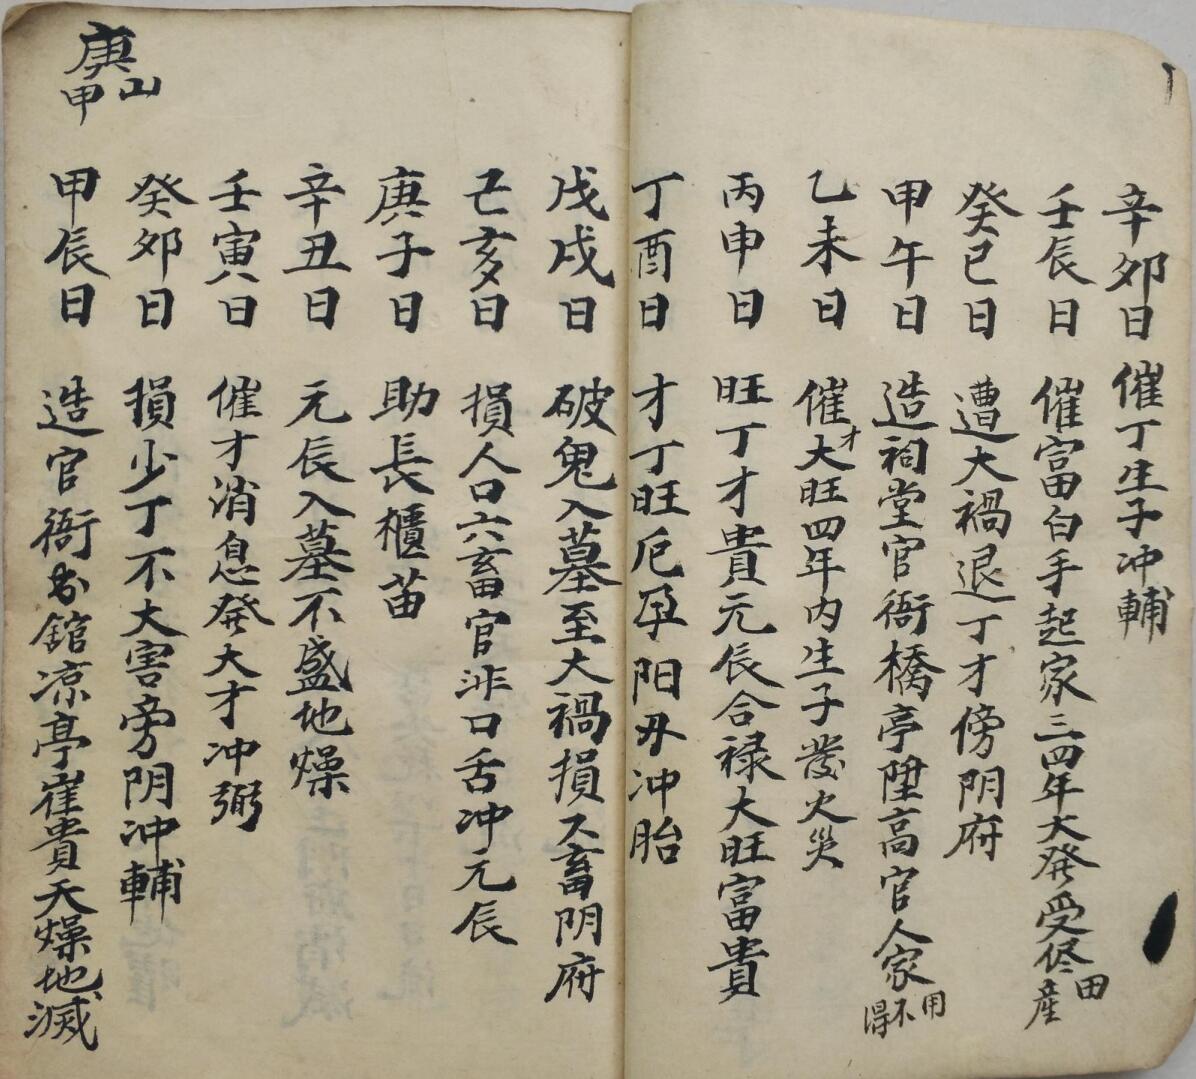 辛卯日 催丁生子冲輔
壬辰日 催富白手起家三四年大發受田産
癸巳日 遭大禍退丁才傍阴府
甲午日 造祠堂官衙橋亭陞高官人家用不得
乙未日 催才大旺四年内生子發火災
丙申日 旺丁才貴元辰合禄大旺富貴
丁酉日 才丁旺戹孕阳丹冲胎
戊戌日 破鬼入墓至大禍損六畜阴府
己亥日 損人口六畜官非口舌冲元辰
庚子日 助長櫃苗
辛丑日 元辰入墓不盛地燥
壬寅日 催才消息發大才冲弼
癸卯日 損少丁不大害旁阴冲輔
甲辰日 造官衙書館凉亭崔貴天燥地滅
庚甲山